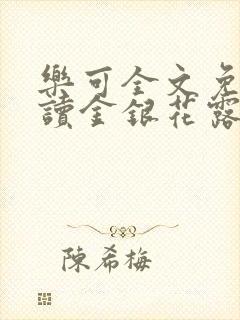 樂可全文免
讀金銀花露
陳希梅